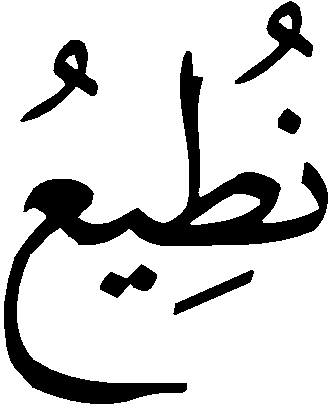 نُطِيعُ